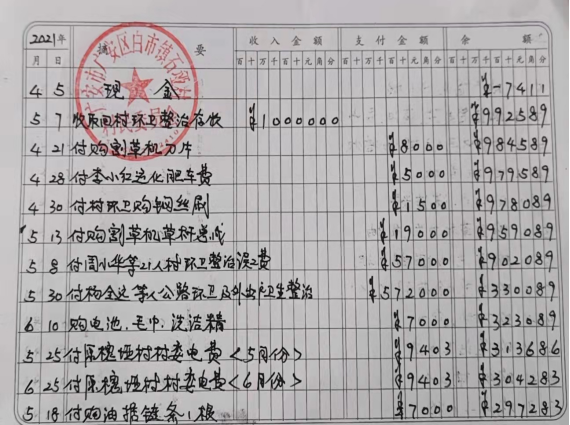 2021年 摘 要 收入金额 支付金额 余 额
月 日 百十万千百十元角分 百十万千百十元角分 百十万千百十元角分
广安市广安区白市镇石
4 5 现 金 ¥-7411
5 7 收 村环卫整治存饮 ¥1000000 ¥992589
4 21 付购割草机刀片 ¥8000 ¥984589
4 28 付李小红运化肥车费 ¥5000 ¥979589
4 30 付村环卫购钢丝刷 ¥1500 ¥978089
5 13 付购割草机草杆 ¥19000 ¥959089
5 8 付周小华等21人村环卫整治误工费 ¥57000 ¥902089
5 30 付杨全达等人公路环卫及外出户卫生整治 ¥572000 ¥330089
6 10 购电池、毛巾、洗洁精 ¥7000 ¥323089
5 25 付原槐垭村村委电费<5月份> ¥9403 ¥313686
6 25 付原槐垭村村委电费<6月份> ¥9403 ¥304283
5 18 付购油锯链条1根 ¥7000 ¥297283